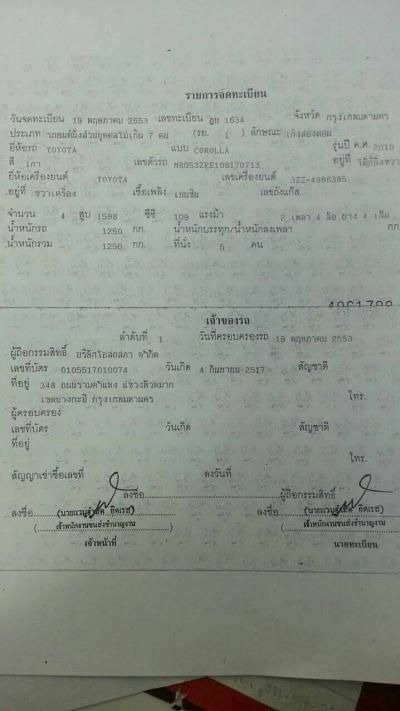 รายการจดทะเบียน
วันจดทะเบียน 19 พฤษภาคม 2553 เลขทะเบียน 1634 จังหวัด กรุงเทพมหานคร
ประเภท รถยนต์นั่งส่วนบุคคลไม่เกิน 7 คน (รย. 1 ) ลักษณะ เก๋งสองตอน
ยี่ห้อรถ TOYOTA แบบ COROLLA รุ่นปี ค.ศ. 2010
สี เทา เลขตัวรถ MR053ZEE106170713 อยู่ที่
ยี่ห้อเครื่องยนต์ TOYOTA เลขเครื่องยนต์ 3ZZ-4986385
อยู่ที่ ขวาเครื่อง เชื้อเพลิง เบนซิน เลขถังแก๊ส
จำนวน 4 สูบ 1598 ซีซี 109 แรงม้า 2 เพลา 4 ล้อ ยาง 4 เส้น
น้ำหนักรถ 1250 กก. น้ำหนักบรรทุก/น้ำหนักลงเพลา กก
น้ำหนักรวม 1250 กก. ที่นั่ง 5 คน
เจ้าของรถ
ลำดับที่ 1 วันที่ครอบครองรถ 19 พฤษภาคม 2553
ผู้ถือกรรมสิทธิ์ บริษัทโอสถสภา จำกัด
เลขที่บัตร 0105517010074 วันเกิด 4 กันยายน 2517 สัญชาติ
ที่อยู่ 348 ถนนรามคำแหง แขวงหัวหมาก
เขตบางกะปิ กรุงเทพมหานคร โทร.
ผู้ครอบครอง
เลขที่บัตร วันเกิด สัญชาติ
ที่อยู่
โทร.
สัญญาเช่าซื้อเลขที่ ลงวันที่
ลงชื่อ ผู้ถือกรรมสิทธิ์
ลงชื่อ ลงชื่อ
เจ้าพนักงานขนส่งชำนาญงาน เจ้าพนักงานขนส่งชำนาญงาน
เจ้าหน้าที่ นายทะเบียน